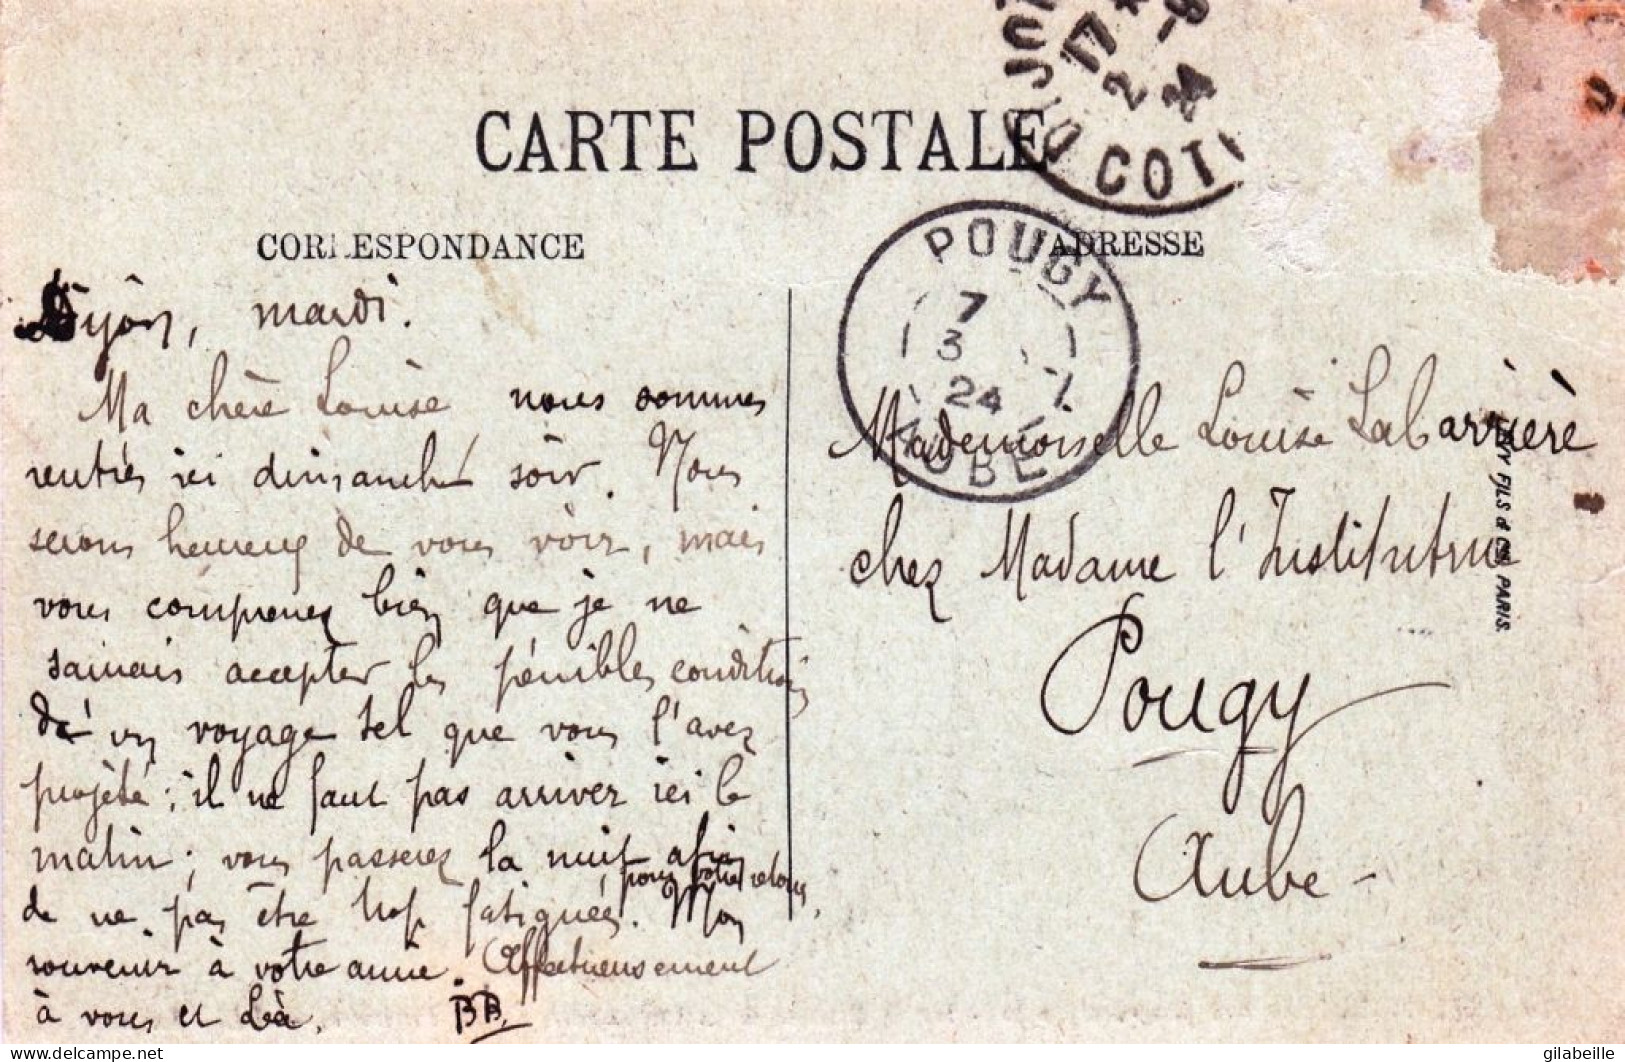 CARTE POSTALE
CORRESPONDANCE
ADRESSE
DIJON
17
2 24
COT
POUGY
7
3
24
AUBE
Dijon, mardi.
Ma chère Louise nous sommes
rentrés ici dimanche soir. Nous
serons heureux de vous voir, mais
vous comprenez bien que je ne
saurais accepter les pénibles conditions
d'un voyage tel que vous l'avez
projeté ; il ne faut pas arriver ici le
matin ; vous passerez la nuit afin
pour votre retour,
de ne pas être trop fatiguées. Mon
souvenir à votre amie. Affectueusement
à vous et Léa.
BB.
Mademoiselle Louise Labarrière
chez Madame l'Institutrice
Pougy
Aube -
LEVY FILS & Cie PARIS.
delcampe.net
gilabeille